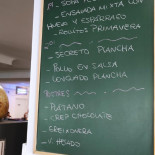 - ENSALADA MIXTA CON
HUEVO Y ESPÁRRAGO
- ROLLITOS PRIMAVERA
- SECRETO PLANCHA
- POLLO EN SALSA
- LENGUADO PLANCHA
POSTRES
- PLATANO
- CREP CHOCOLATE
- GREIXONERA
- V. HELADO